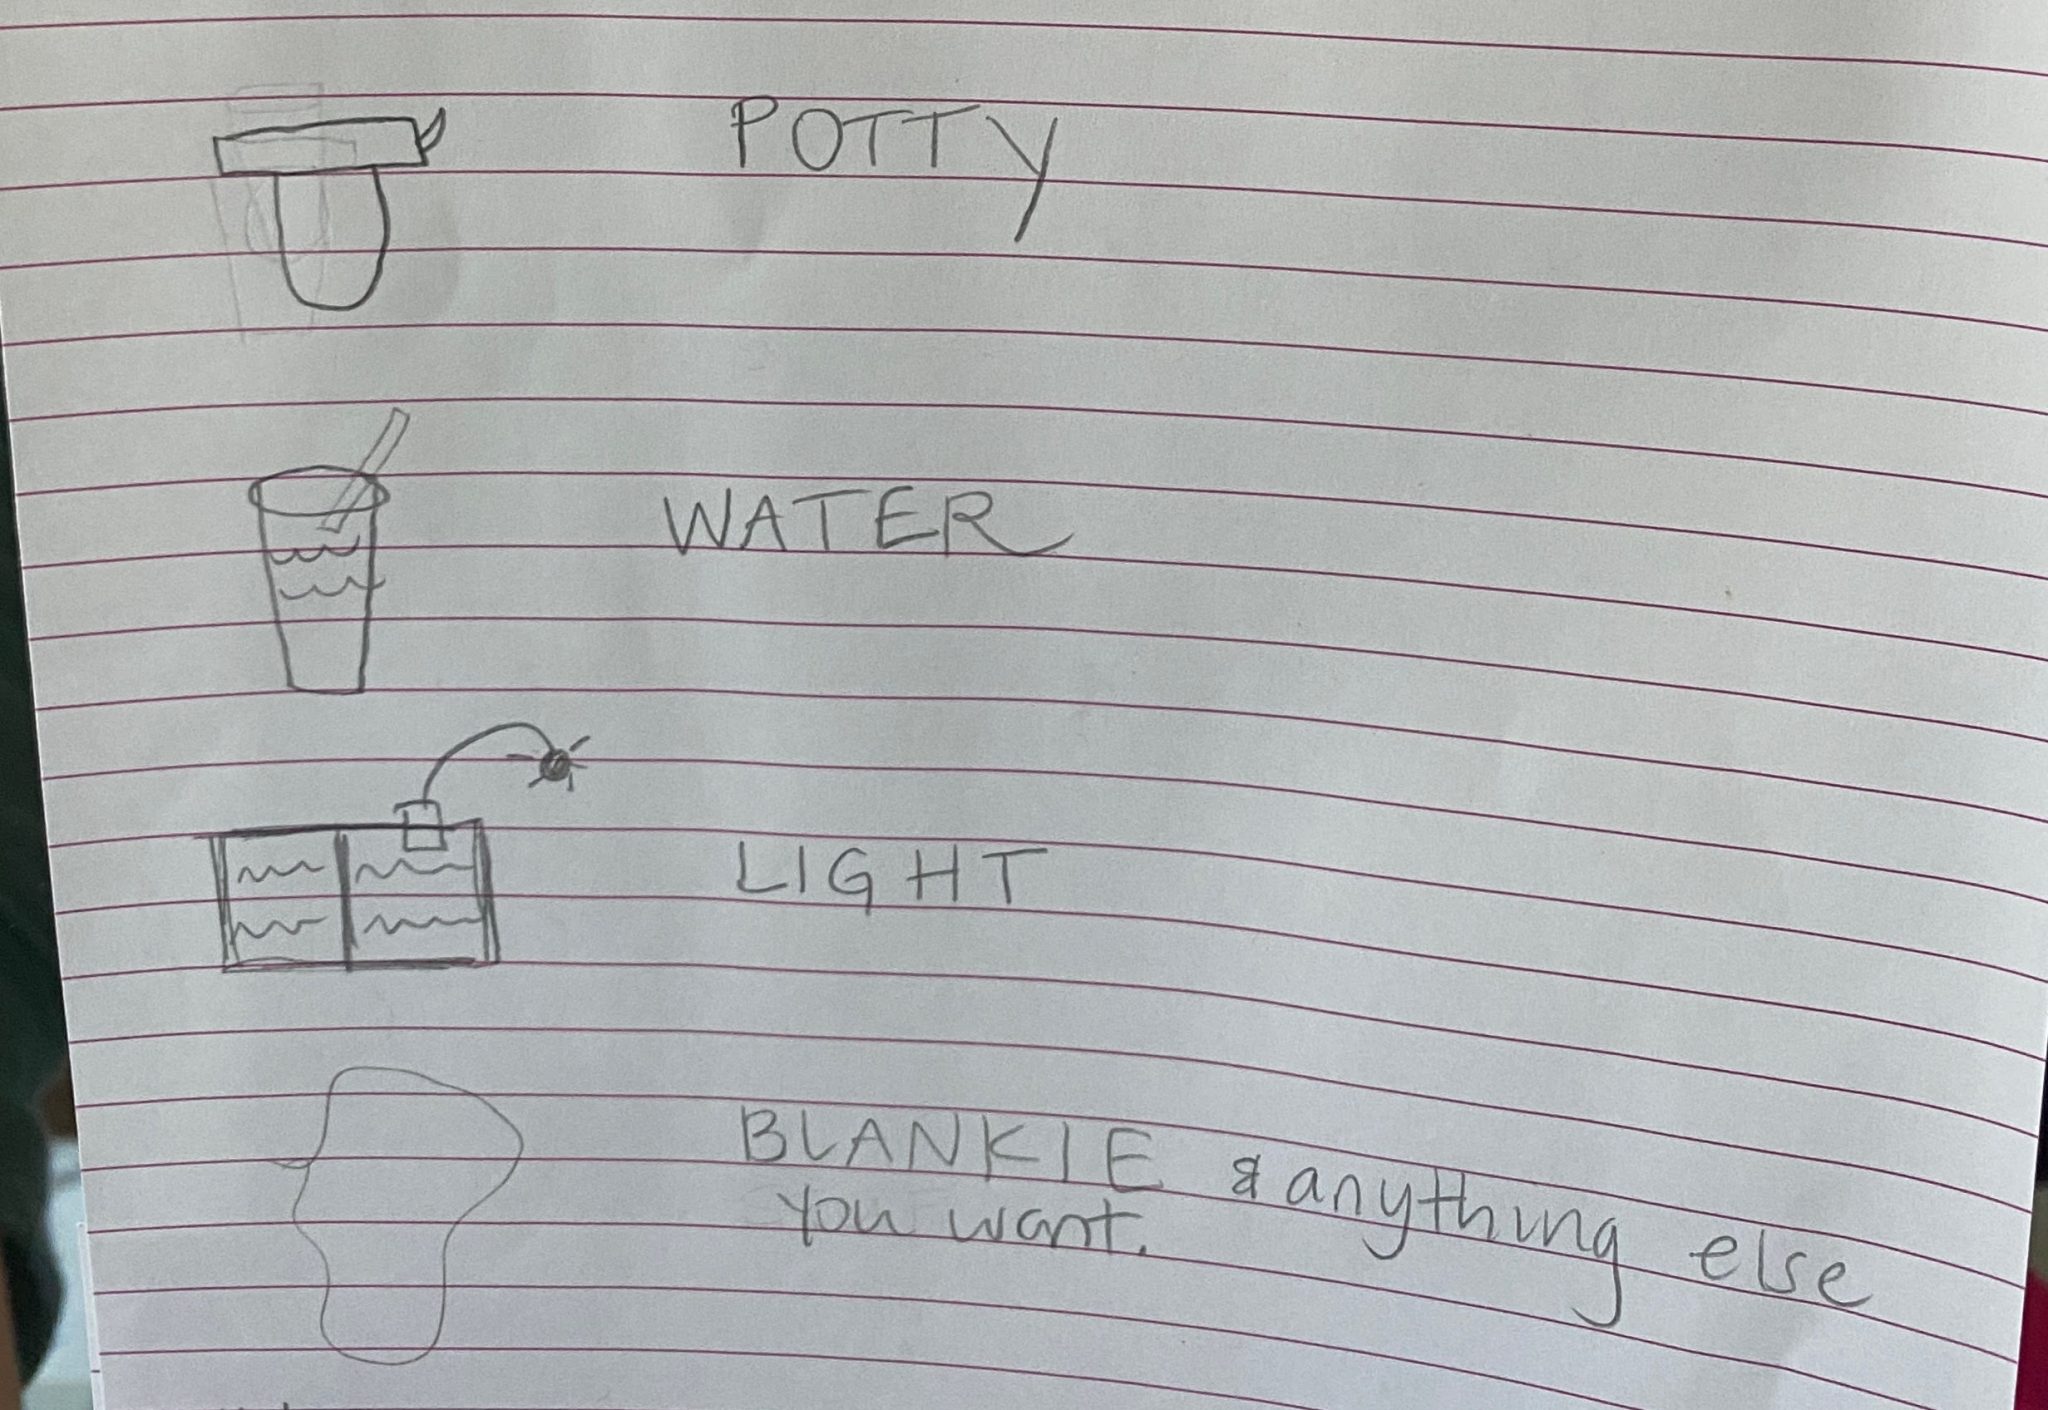 POTTY
WATER
LIGHT
BLANKIE & anything else
you want.